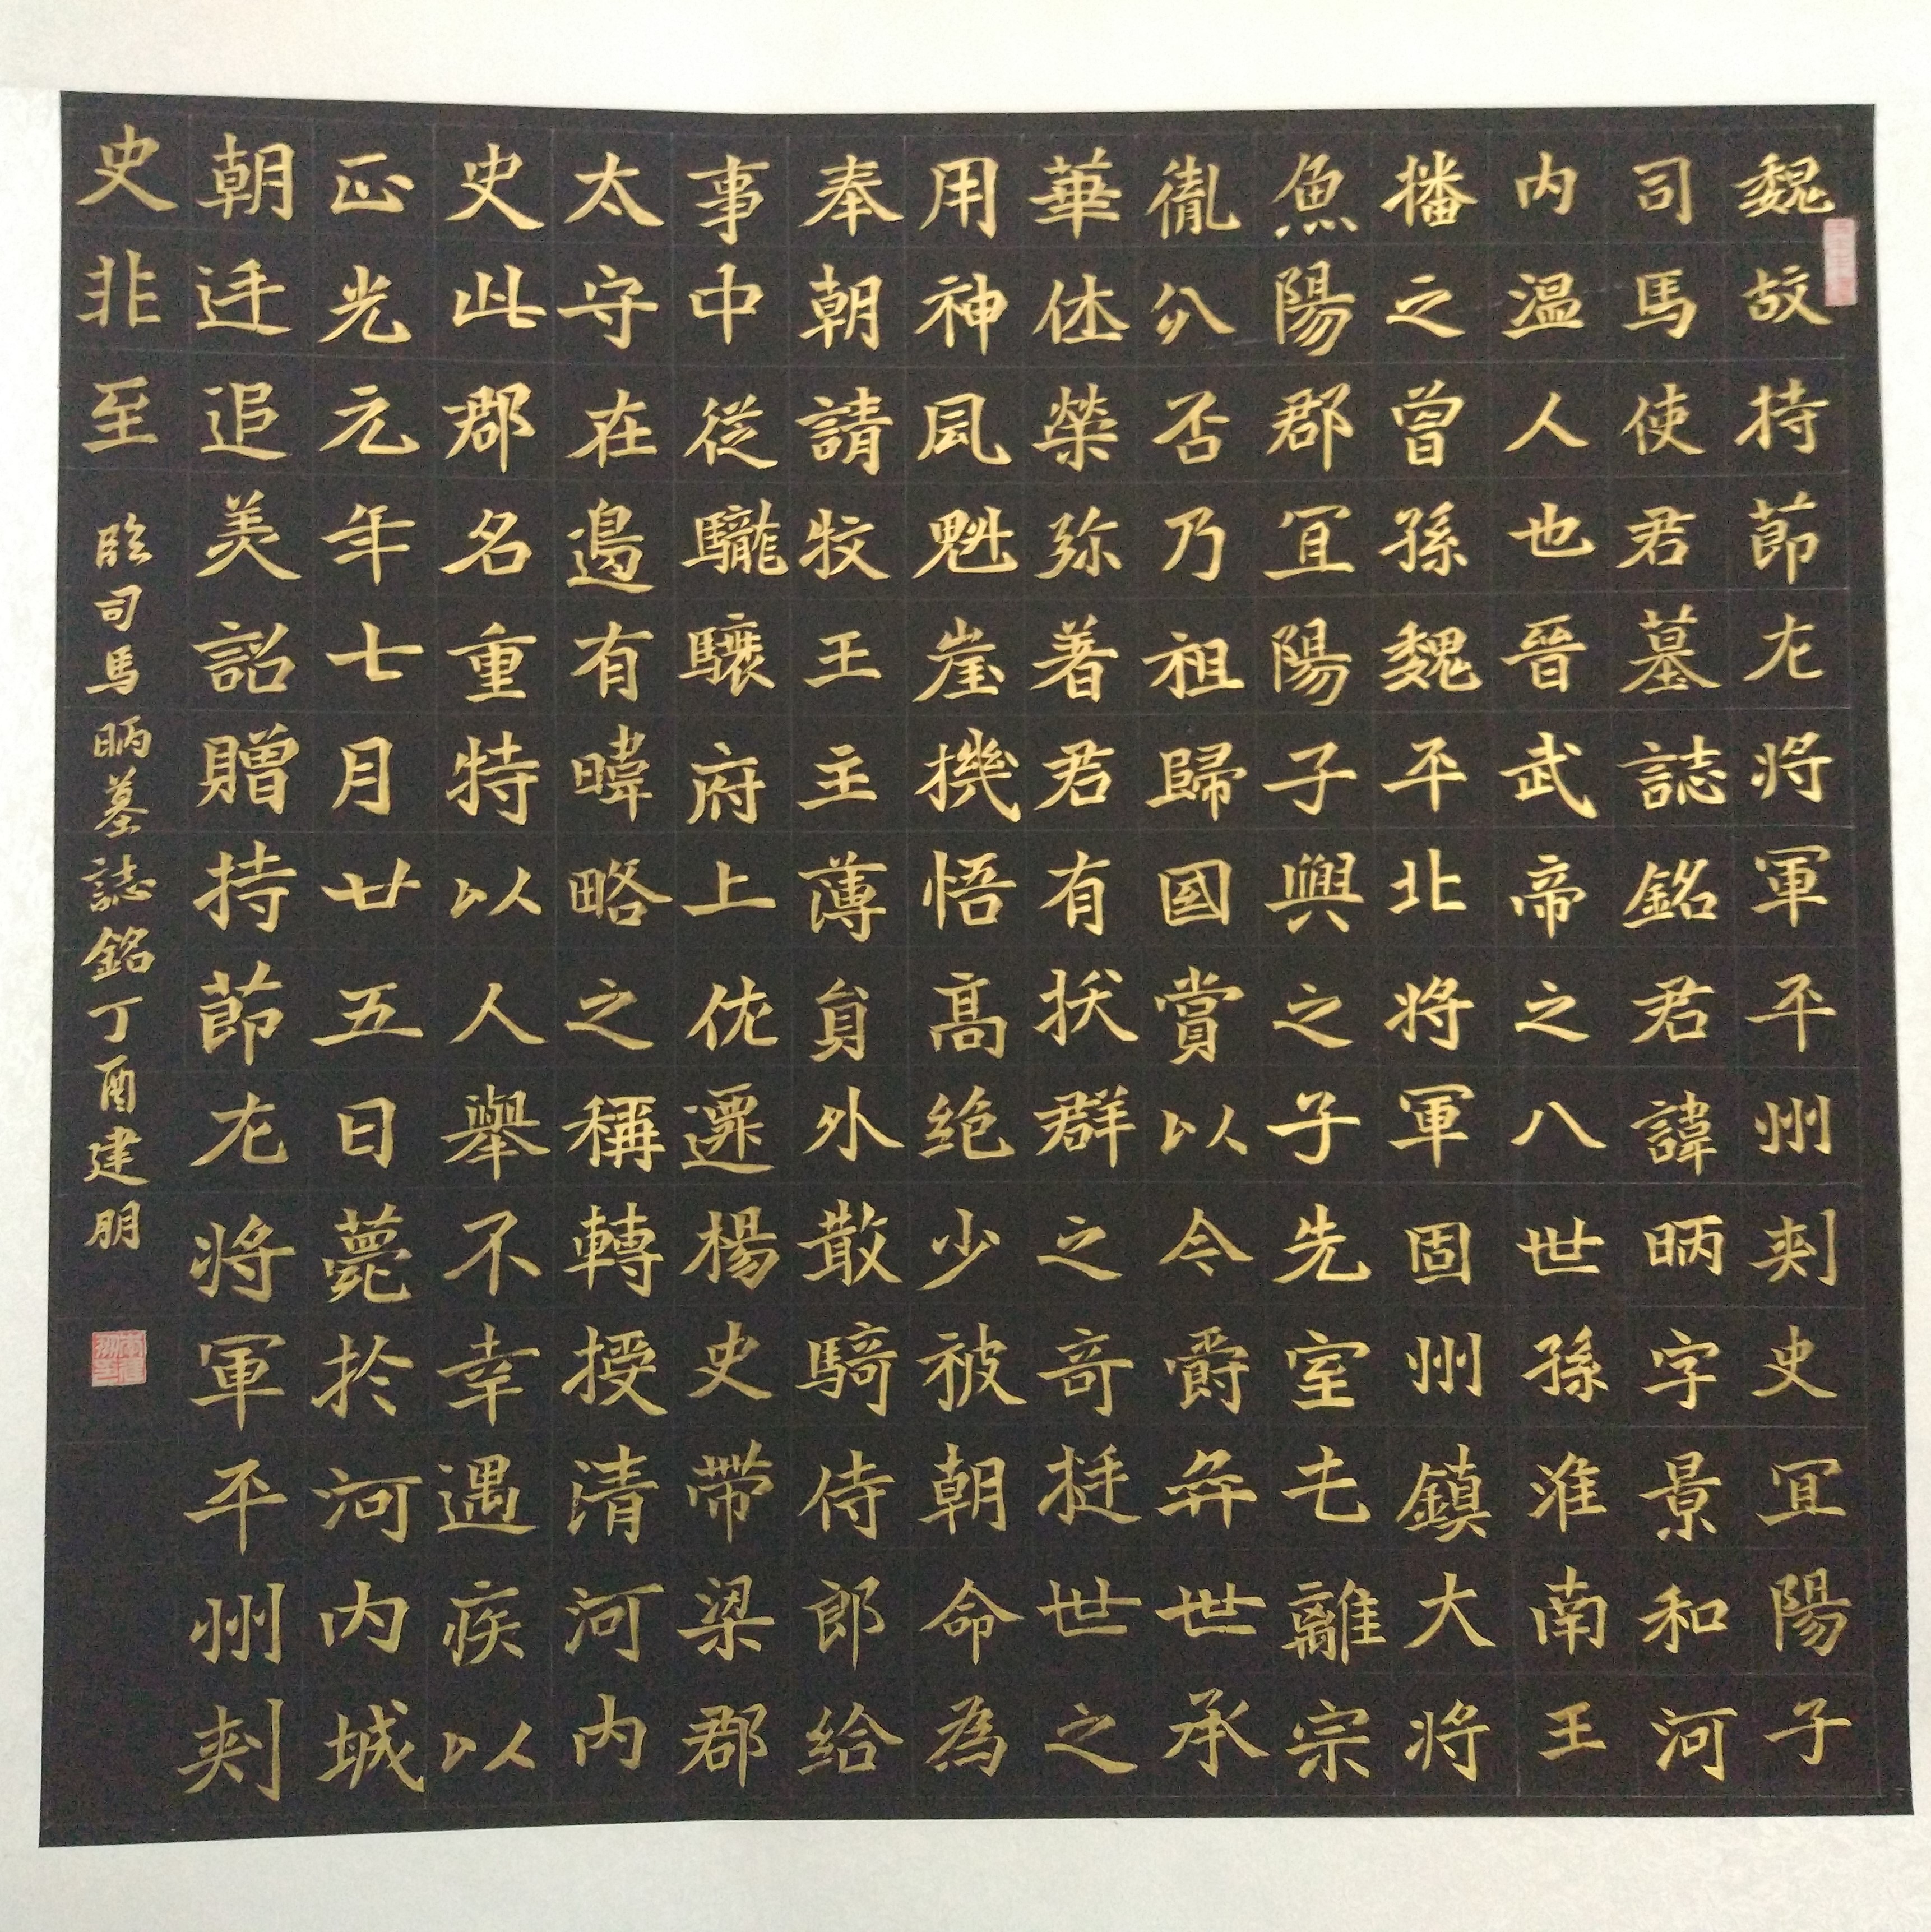 魏故持節左將軍平州刺史宜陽子
司馬使君墓誌銘君諱昞字景和河
內溫人也晉武帝之八世孫淮南王
播之曾孫魏平北將軍固州鎮大將
魚陽郡宜陽子興之子先室屯離宗
胤分否乃祖歸國賞以今爵弈世承
華休榮弥著君有拔群之奇挺世之
用神風魁崖機悟高絕少被朝命為
奉朝請牧王主薄員外散騎侍郎給
事中從驪驤府上佐遷楊史帶梁郡
太守在邊有暐略之稱轉授清河內
史此郡名重特以人舉不幸遇疾以
正光元年七月廿五日薨於河內城
朝廷追美詔贈持節左將軍平州刺
史非至
臨司馬昞墓誌銘丁酉建朋